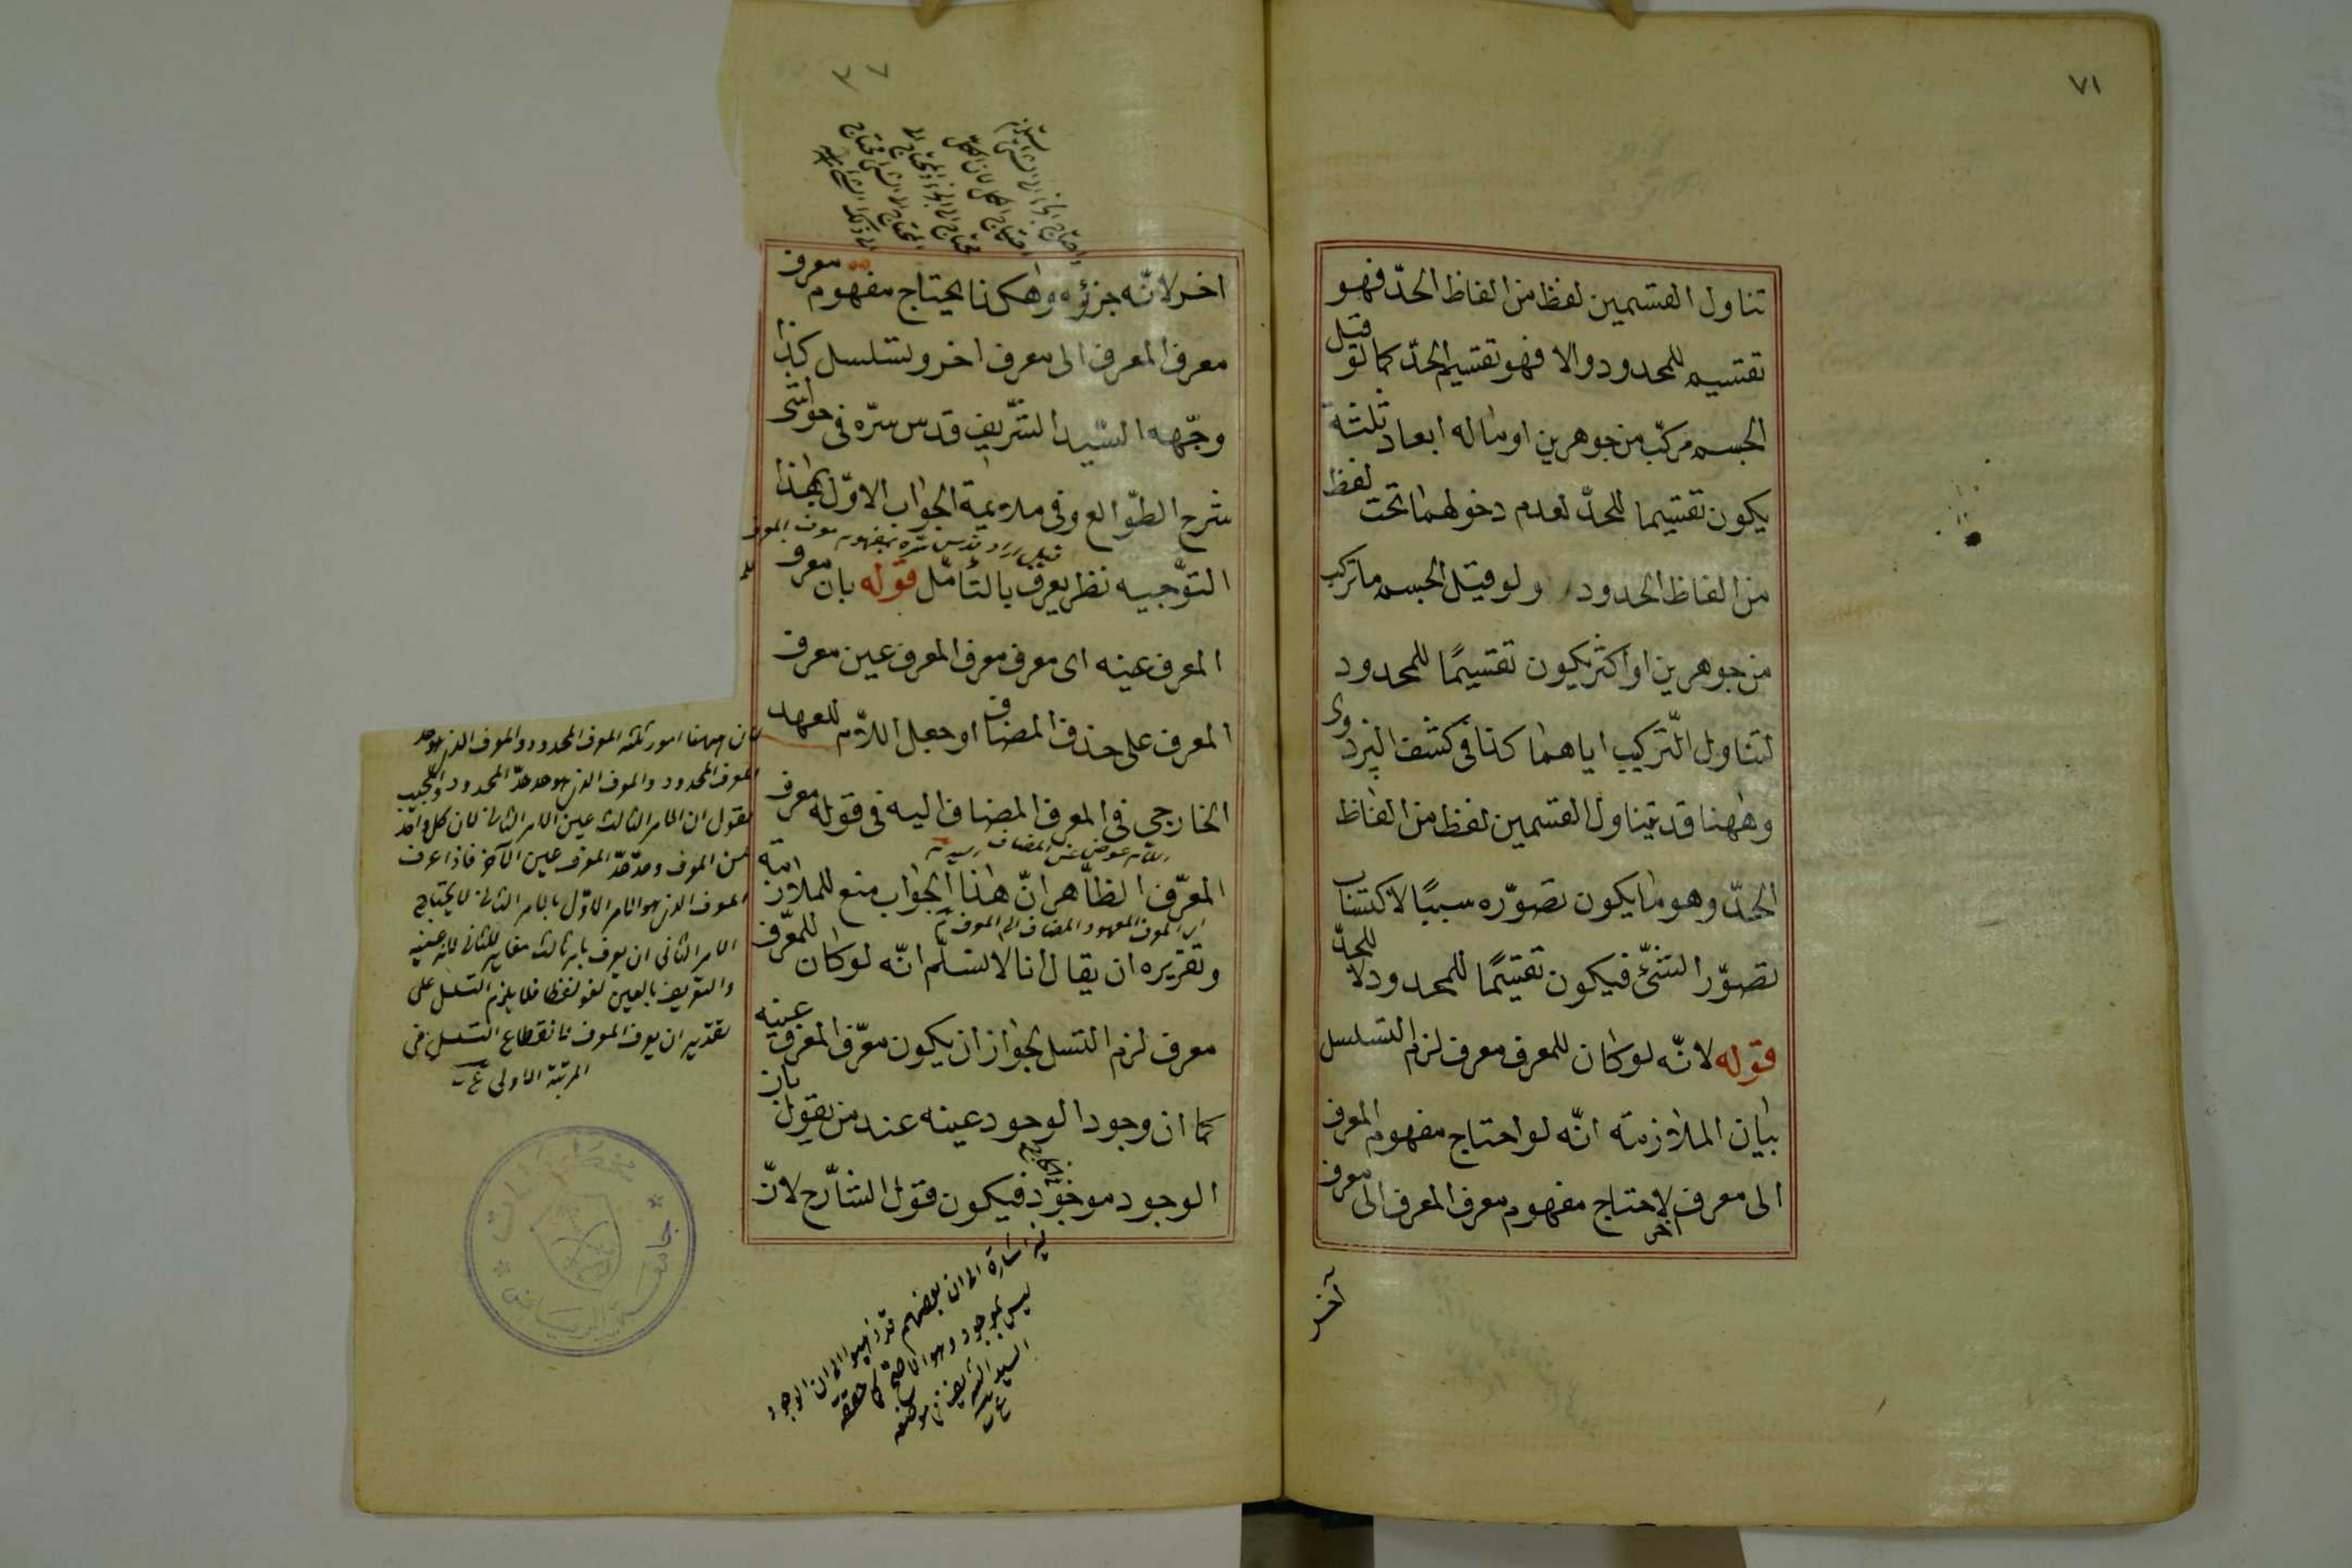 ٧١
تناول القسمين لفظ من الفاظ الحدّ فهو
تقسيم للمحدود والا فهو تقسيم الحدّ كما لو قيل
الجسم مركّب من جوهرين او ماله ابعاد ثلثة
يكون تقسيما للحدّ لعدم دخولهما تحت لفظ
من الفاظ الحدود ولو قيل الجسم ما تركب
من جوهرين او اكثر يكون تقسيمًا للمحدود
لتناول التّركيب اياهما كذا فى كشف البزدوى
وههنا قد يتناول القسمين لفظ من الفاظ
الحدّ وهو ما يكون تصوّره سببًا لاكتساب
تصوّر الشئ فيكون تقسيمًا للمحدود لا للحدّ
قوله لانّه لو كان للمعرف معرف لزم التسلسل
بيان الملازمته انّه لو احتاج مفهوم المعرف
الى معرف لاحتاج مفهوم معرف المعرف الى معرف
آخر
آخر
٧٣
اخر لانّه جزؤه وهكذا يحتاج مفهوم معرف
معرف المعرف الى معرف اخر وتسلسل كذا
وجّهه السّيد الشّريف قدس سرّه فى حواشى
شرح الطّوالع وفى ملايمة الجواب الاوّل بهذا
التوّجيه نظر يعرف بالتأمّل قوله بان معرف
المعرف عينه اى معرف معرف المعرف عين معرف
المعرف على حذف المضاف او جعل اللاّم للعهد
الخارجى فى المعرف المضاف اليه فى قوله معرف
عوض عن المضاف
المعرّف الظّاهر انّ هذا الجواب منع للملازمة
المعرف المعهود المضاف الى المعرف
وتقريره ان يقال انا لا نسلّم انّه لو كان للمعّرف
معرف لزم التسل لجواز ان يكون معرّف المعرف عينه
كما ان وجود الوجود عينه عند من يقول بان
الوجود موجود فيكون قول الشّارح لانّ
ان ههنا امور ثلثة المعرف المحدود والمعرف الذى هو حد
المعرف المحدود والمعرف الذى هو حد حدّ المحدود والمجيب
يقول ان الامر الثالث عين الامر الثانى لان كل واحد
من المعرف وحدّ حدّ المعرف عين الآخر فاذا عرف
المعرف الذى هو الامر الاوّل بالامر الثانى لا يحتاج
الامر الثانى ان يعرف بامر ثالث مغاير للثانى لانه عينه
والتعريف بالعين لغو لفظا فلا يلزم التسلسل على
تقدير ان يعرف المعرف لانقطاع التسلسل فى
المرتبة الاولى
فيه اشارة الى ان بعضهم قد ذهبوا الى ان الوجود
ليس بموجود وهو الاصح كما حققه
السيد الشريف فى موضعه